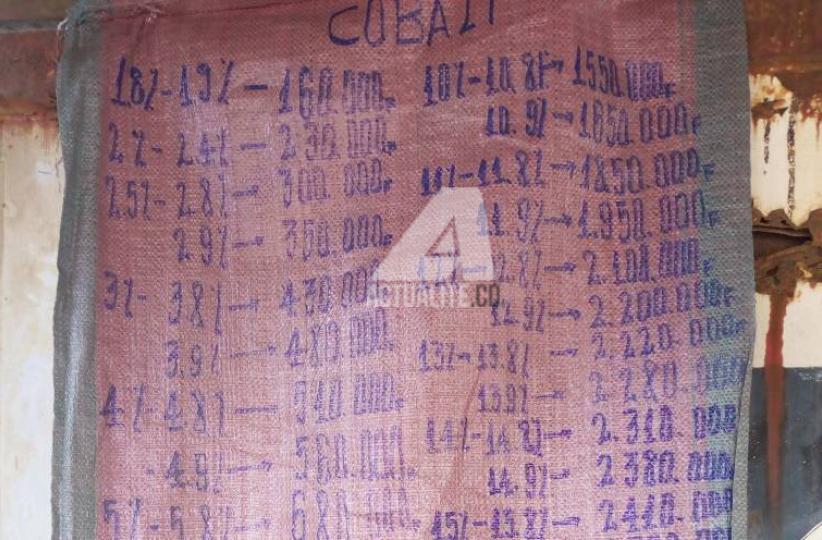 COBALT
18% - 19% — 160.000F
2% - 24% — 230.000F
25% - 28% — 300.000F
29% → 350.000F
3% - 38% → 430.000
39% → 480.000F
4% - 48% → 510.000F
- 49% → 560.000
5% - 58% → 680.000
10% - 10.8% → 1550.000F
10.9% → 1650.000F
11% - 11.8% → 1850.000F
11.9% → 1.950.000F
12.9% → 2.200.000F
13% - 13.8% → 2.220.000
13.9% → 2.280.000
14% - 14.8% → 2.310.000
14.9% → 2.380.000
15% - 13.8% → 2.410.000
ACTUALITE.CD